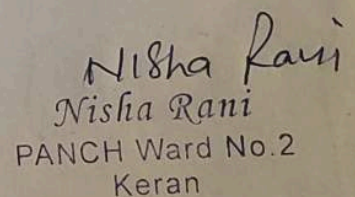 Nisha Rani
Nisha Rani
PANCH Ward No.2
Keran